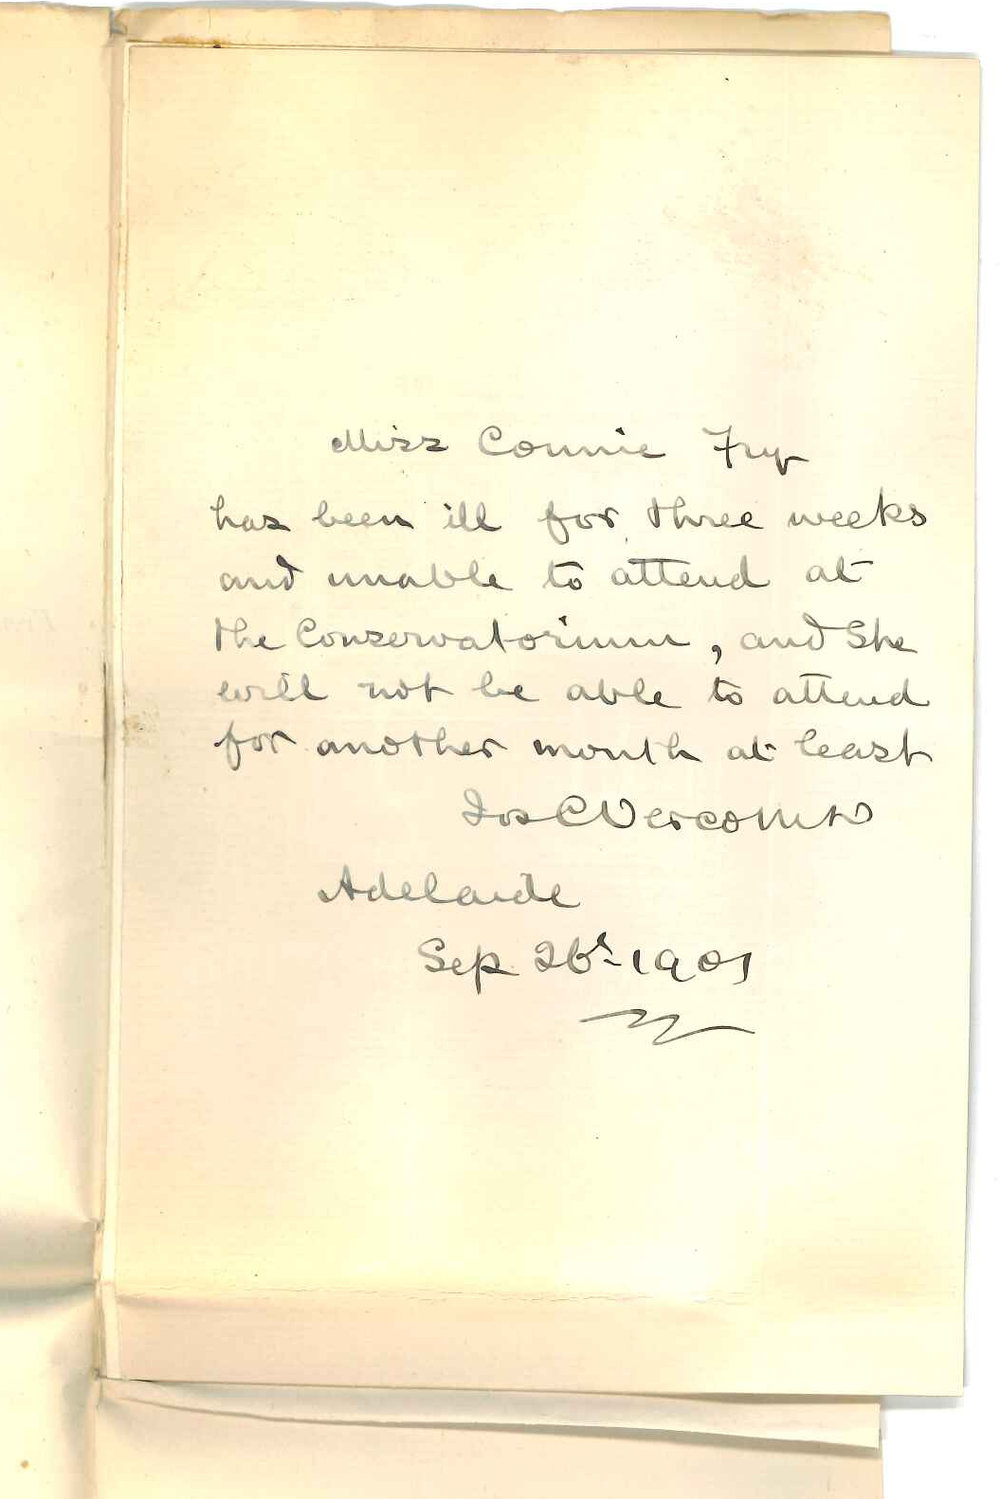 Miss Connie Fry
has been ill for three weeks
and unable to attend at
the Conservatorium, and She
will not be able to attend
for another month at least
Jos C Verco MD
Adelaide
Sep 26th 1901